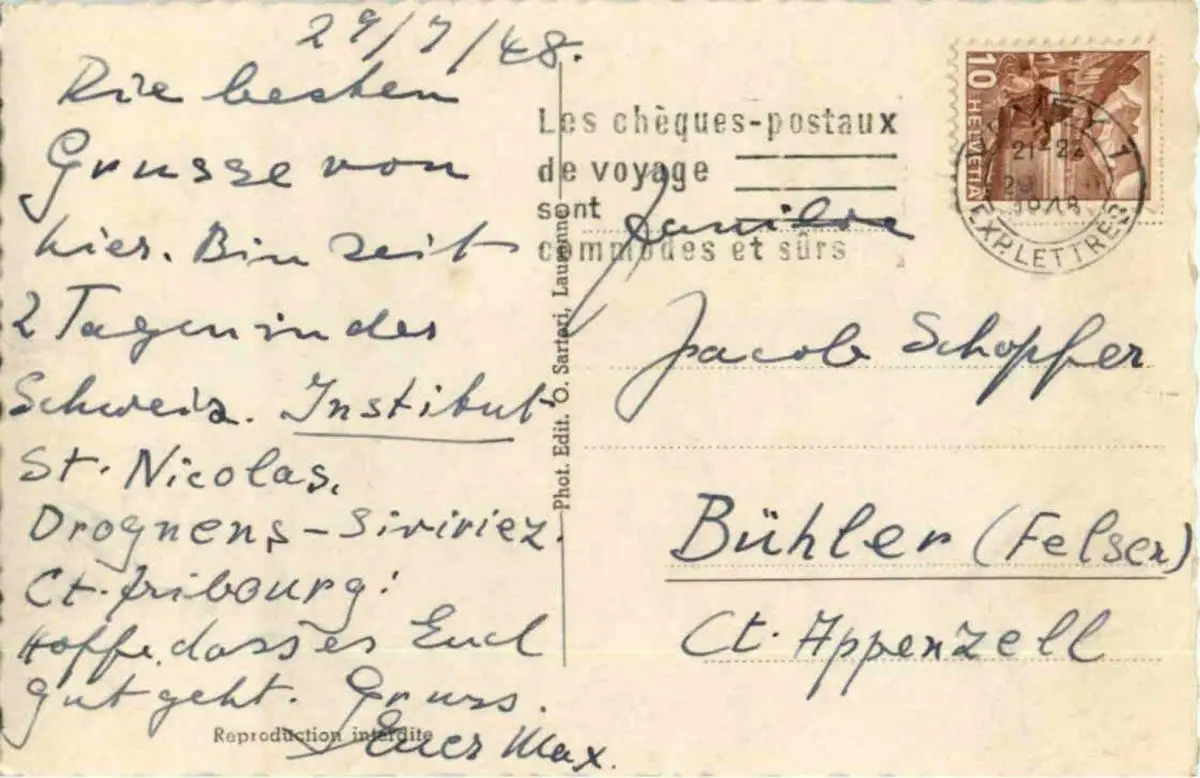 29/7/48.
Die besten
Grusse von
hier. Bin seit
2 Tagen in der
Schweiz. Institut
St. Nicolas,
Drognens-Siviriez.
Ct. Fribourg!
Hoffe, dass es Euch
gut geht. Gruss.
Euer Max.
Reproduction interdite
Phot. Edit. O. Sartori, Lausanne
Les chèques-postaux
de voyage
sont
commodes et sûrs
10 HELVETIA
1
21-22
1948
EXP. LETTRES
Familie
Jacob Schopfer
Bühler (Felsen)
Ct. Appenzell